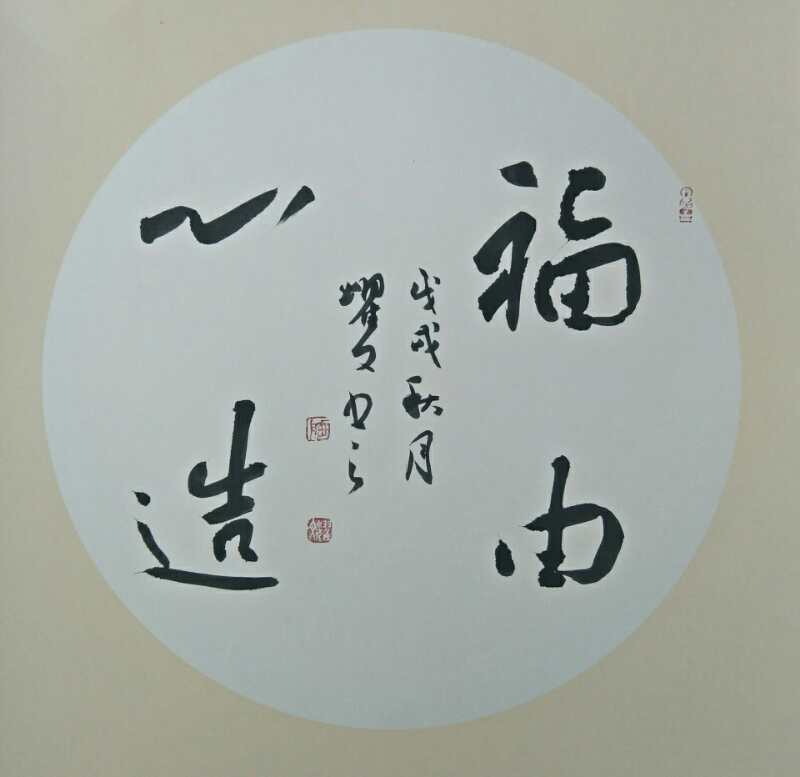 福由
戊戌秋月
耀文书之
心造